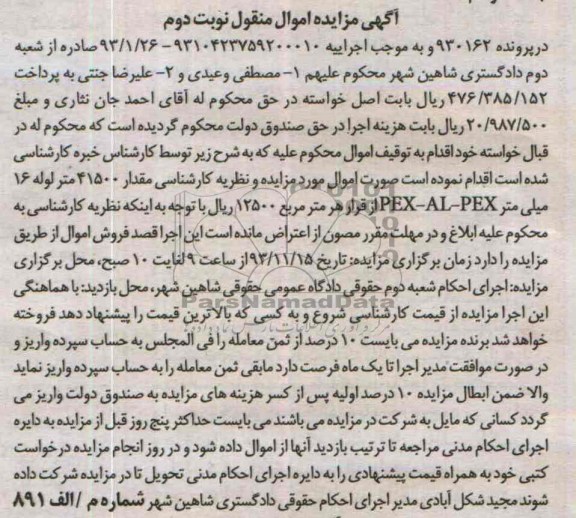 آگهی مزایده اموال منقول نوبت دوم
درپرونده ۹۳۰۱۶۲ و به موجب اجراییه ۹۳۱۰۴۲۳۷۵۹۲۰۰۰۱۰ - ۹۳/۱/۲۶ صادره از شعبه
دوم دادگستری شاهین شهر محکوم علیهم ۱- مصطفی وعیدی و ۲- علیرضا جنتی به پرداخت
۴۷۶/۳۸۵/۱۵۲ ریال بابت اصل خواسته در حق محکوم له آقای احمد جان نثاری و مبلغ
۲۰/۹۸۷/۵۰۰ ریال بابت هزینه اجرا در حق صندوق دولت محکوم گردیده است که محکوم له در
قبال خواسته خود اقدام به توقیف اموال محکوم علیه که به شرح زیر توسط کارشناس خبره کارشناسی
شده است اقدام نموده است صورت اموال مورد مزایده و نظریه کارشناسی مقدار ۴۱۵۰۰ متر لوله ۱۶
میلی متر PEX-AL-PEX از قرار هر متر مربع ۱۲۵۰۰ ریال با توجه به اینکه نظریه کارشناسی به
محکوم علیه ابلاغ و در مهلت مقرر مصون از اعتراض مانده است این اجرا قصد فروش اموال از طریق
مزایده را دارد زمان برگزاری مزایده: تاریخ ۹۳/۱۱/۱۵ از ساعت ۹ لغایت ۱۰ صبح، محل برگزاری
مزایده: اجرای احکام شعبه دوم حقوقی دادگاه عمومی حقوقی شاهین شهر، محل بازدید: با هماهنگی
این اجرا مزایده از قیمت کارشناسی شروع و به کسی که بالاترین قیمت را پیشنهاد دهد فروخته
خواهد شد برنده مزایده می بایست ۱۰ درصد از ثمن معامله را فی المجلس به حساب سپرده واریز و
در صورت موافقت مدیر اجرا تا یک ماه فرصت دارد مابقی ثمن معامله را به حساب سپرده واریز نماید
والا ضمن ابطال مزایده ۱۰ درصد اولیه پس از کسر هزینه های مزایده به صندوق دولت واریز می
گردد کسانی که مایل به شرکت در مزایده می باشند می بایست حداکثر پنج روز قبل از مزایده به دایره
اجرای احکام مدنی مراجعه تا ترتیب بازدید آنها از اموال داده شود و در روز انجام مزایده درخواست
کتبی خود به همراه قیمت پیشنهادی را به دایره اجرای احکام مدنی تحویل تا در مزایده شرکت داده
شوند مجید شکل آبادی مدیر اجرای احکام حقوقی دادگستری شاهین شهر شماره م /الف ۸۹۱
ParsNamadData